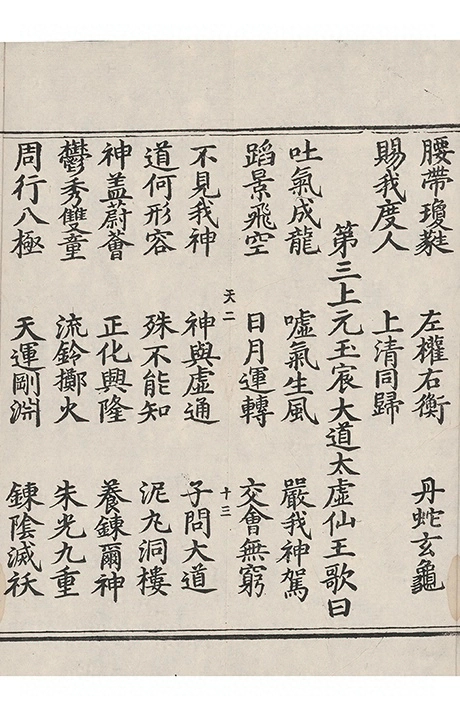 腰帶瓊蕤　左權右衡　丹蛇玄龜
賜我度人　上清同歸
第三上元玉宸大道太虛仙王歌曰
吐氣成龍　噓氣生風　嚴我神駕
蹈景飛空　日月運轉　交會無窮
天二　十三
不見我神　神與虛通　子問大道
道何形容　殊不能知　泥丸洞樓
神蓋蔚薈　正化興隆　養鍊爾神
鬱秀雙童　流鈴擲火　朱光九重
周行八極　天運剛淵　鍊陰滅祅